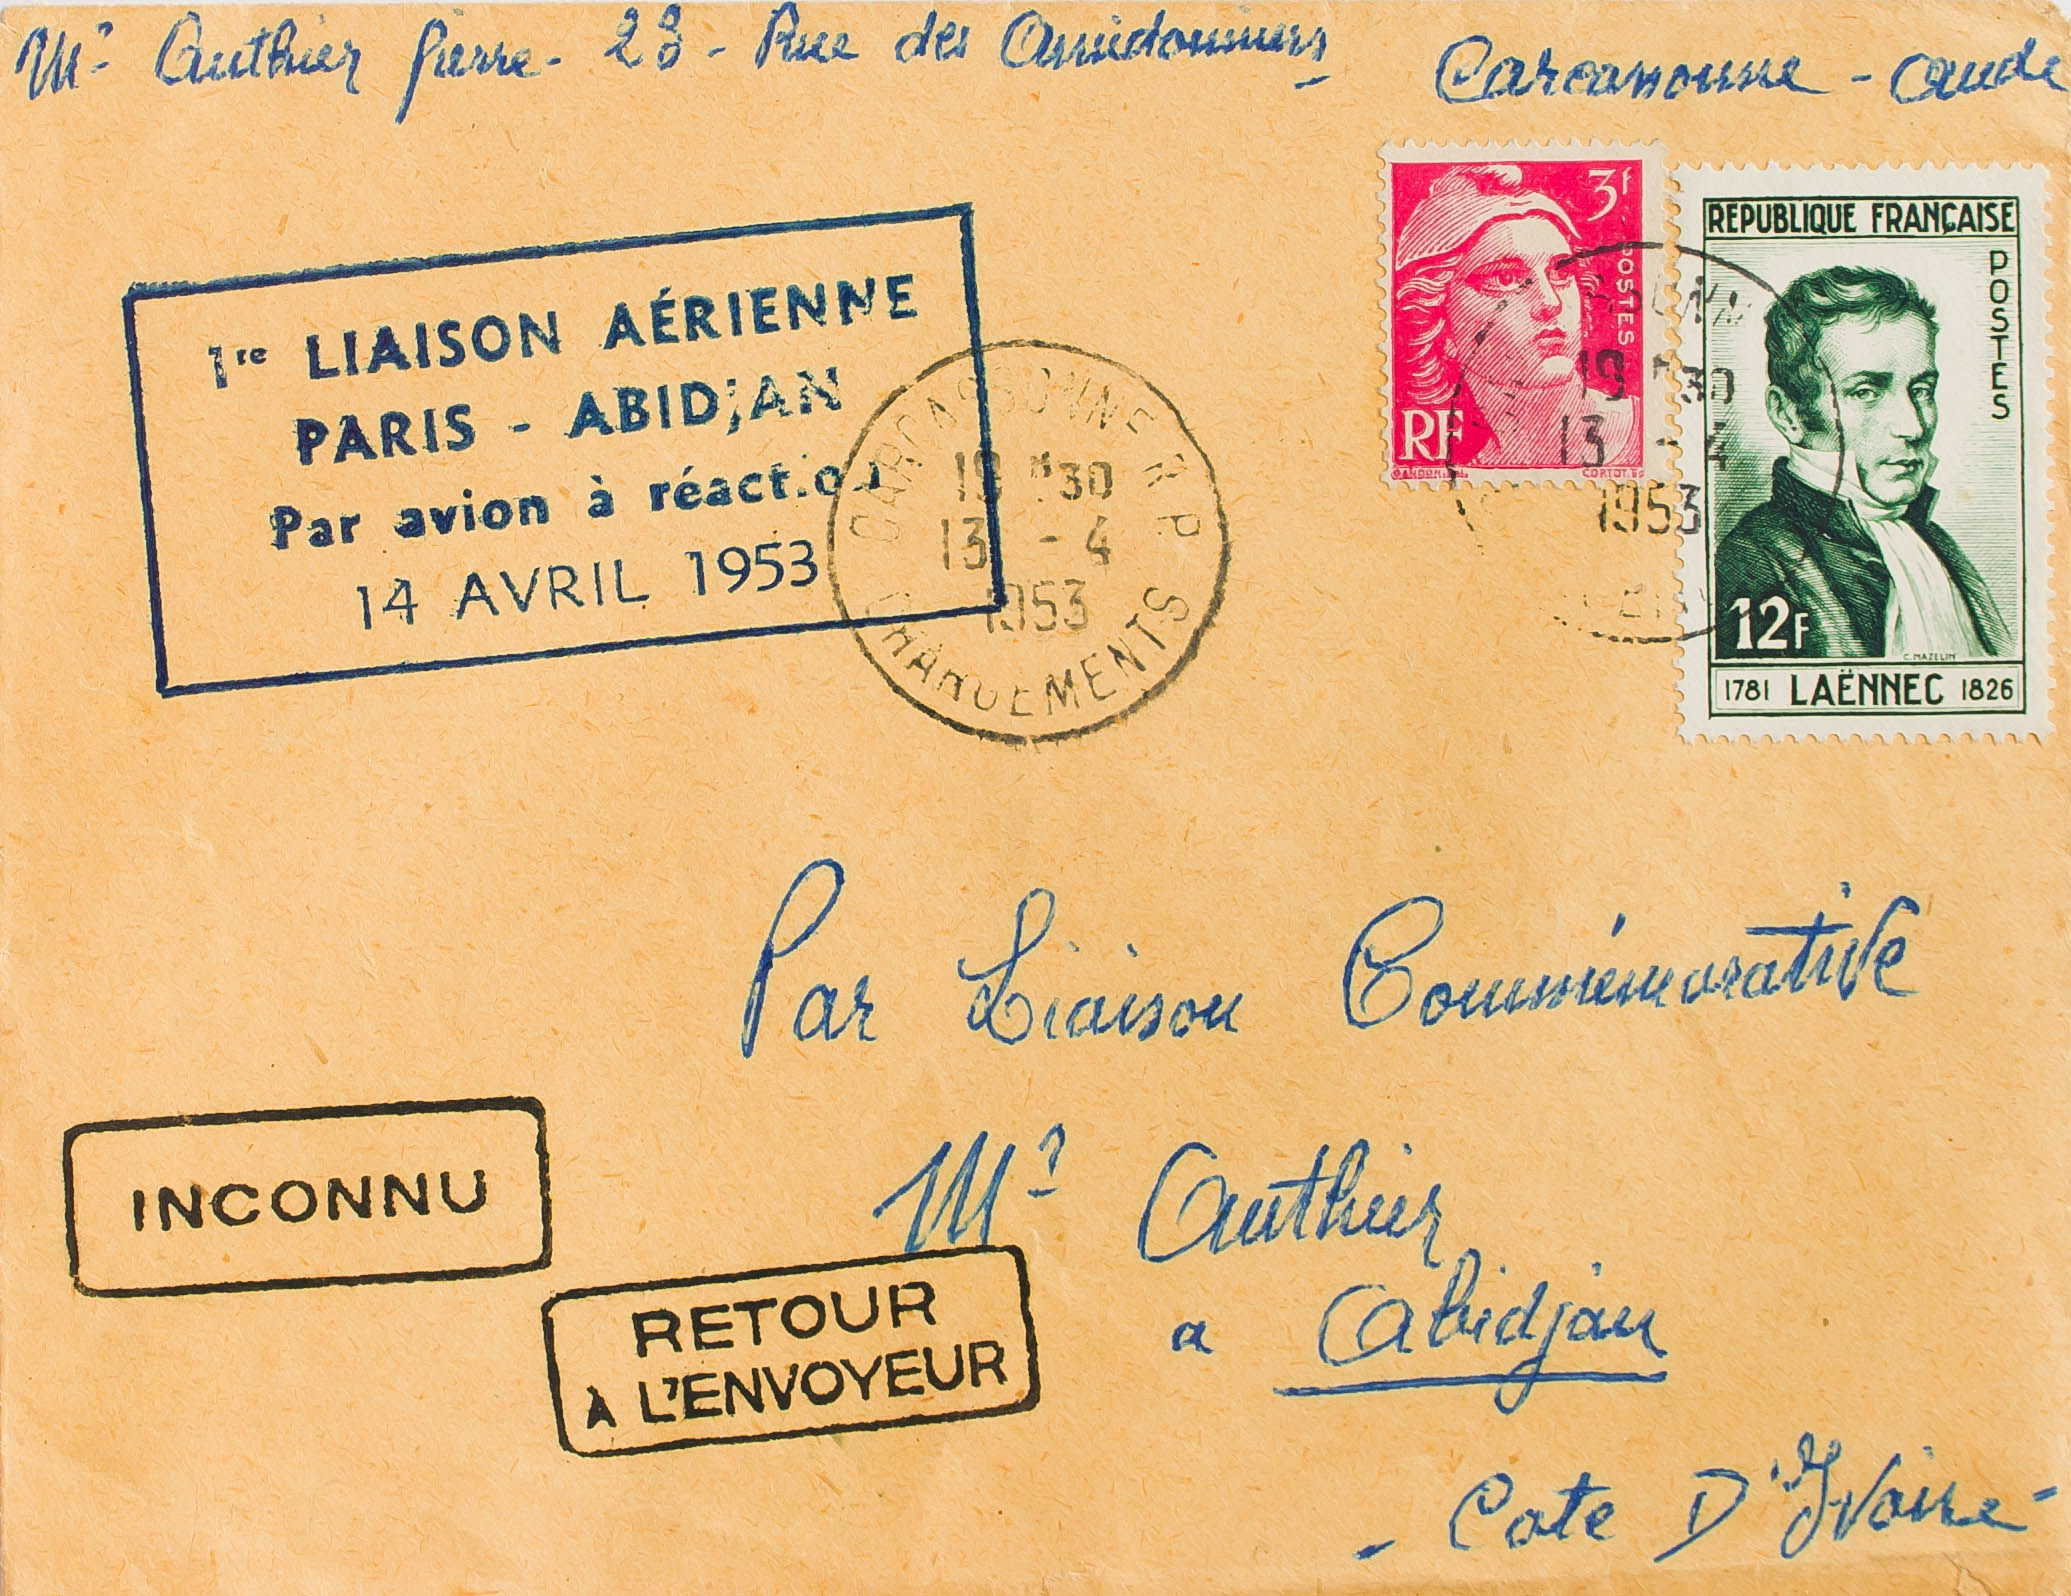 Mr Authier Pierre - 23 - Rue des Amidonniers Carcassonne - Aude
1re LIAISON AÉRIENNE
PARIS - ABIDJAN
Par avion à réaction
14 AVRIL 1953
CARCASSONNE R.P.
19 H30
13 - 4
1953
CHARGEMENTS
3f
POSTES
RF
GANDON
CORTOT
19 H30
13 - 4
1953
REPUBLIQUE FRANÇAISE
POSTES
12F
C. MAZELIN
1781 LAËNNEC 1826
Par Liaison Commémorative
INCONNU
Mr Authier
RETOUR
À L'ENVOYEUR
a Abidjan
- Cote D'Ivoire -